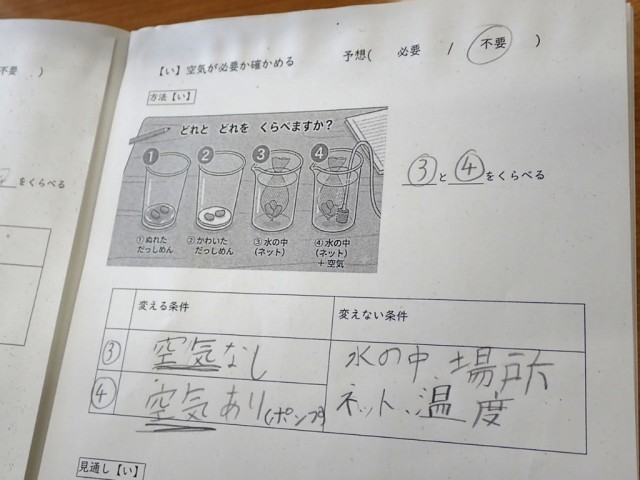 不要 )
をくらべる
【い】空気が必要か確かめる 予想( 必要 / 不要 )
方法【い】
どれと どれを くらべますか?
1 2 3 4
①ぬれた だっしめん
②かわいた だっしめん
③水の中 (ネット)
④水の中 (ネット) +空気
③と④をくらべる
変える条件 変えない条件
③ 空気なし
④ 空気あり(ポンプ)
水の中、場所
ネット、温度
見通し【い】